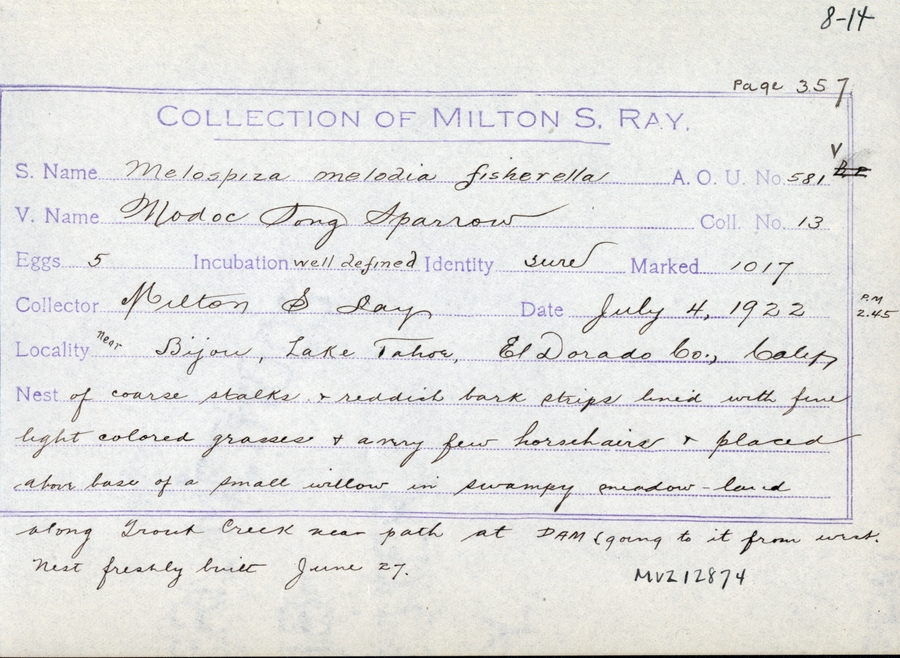 8-14
Page 357
COLLECTION OF MILTON S. RAY.
S. Name Melospiza melodia fisherella A. O. U. No. 581 V
V. Name Modoc Song Sparrow Coll. No. 13
Eggs 5 Incubation well defined Identity sure Marked 1017
Collector Milton S Ray Date July 4, 1922 P.M 2.45
Locality near Bijou, Lake Tahoe, El Dorado Co., Calif
Nest of coarse stalks & reddish bark strips lined with fine
light colored grasses & a very few horsehairs & placed
above base of a small willow in swampy meadow-land
along Trout Creek near path at DAM (going to it from west.
Nest freshly built June 27.
MVZ12874